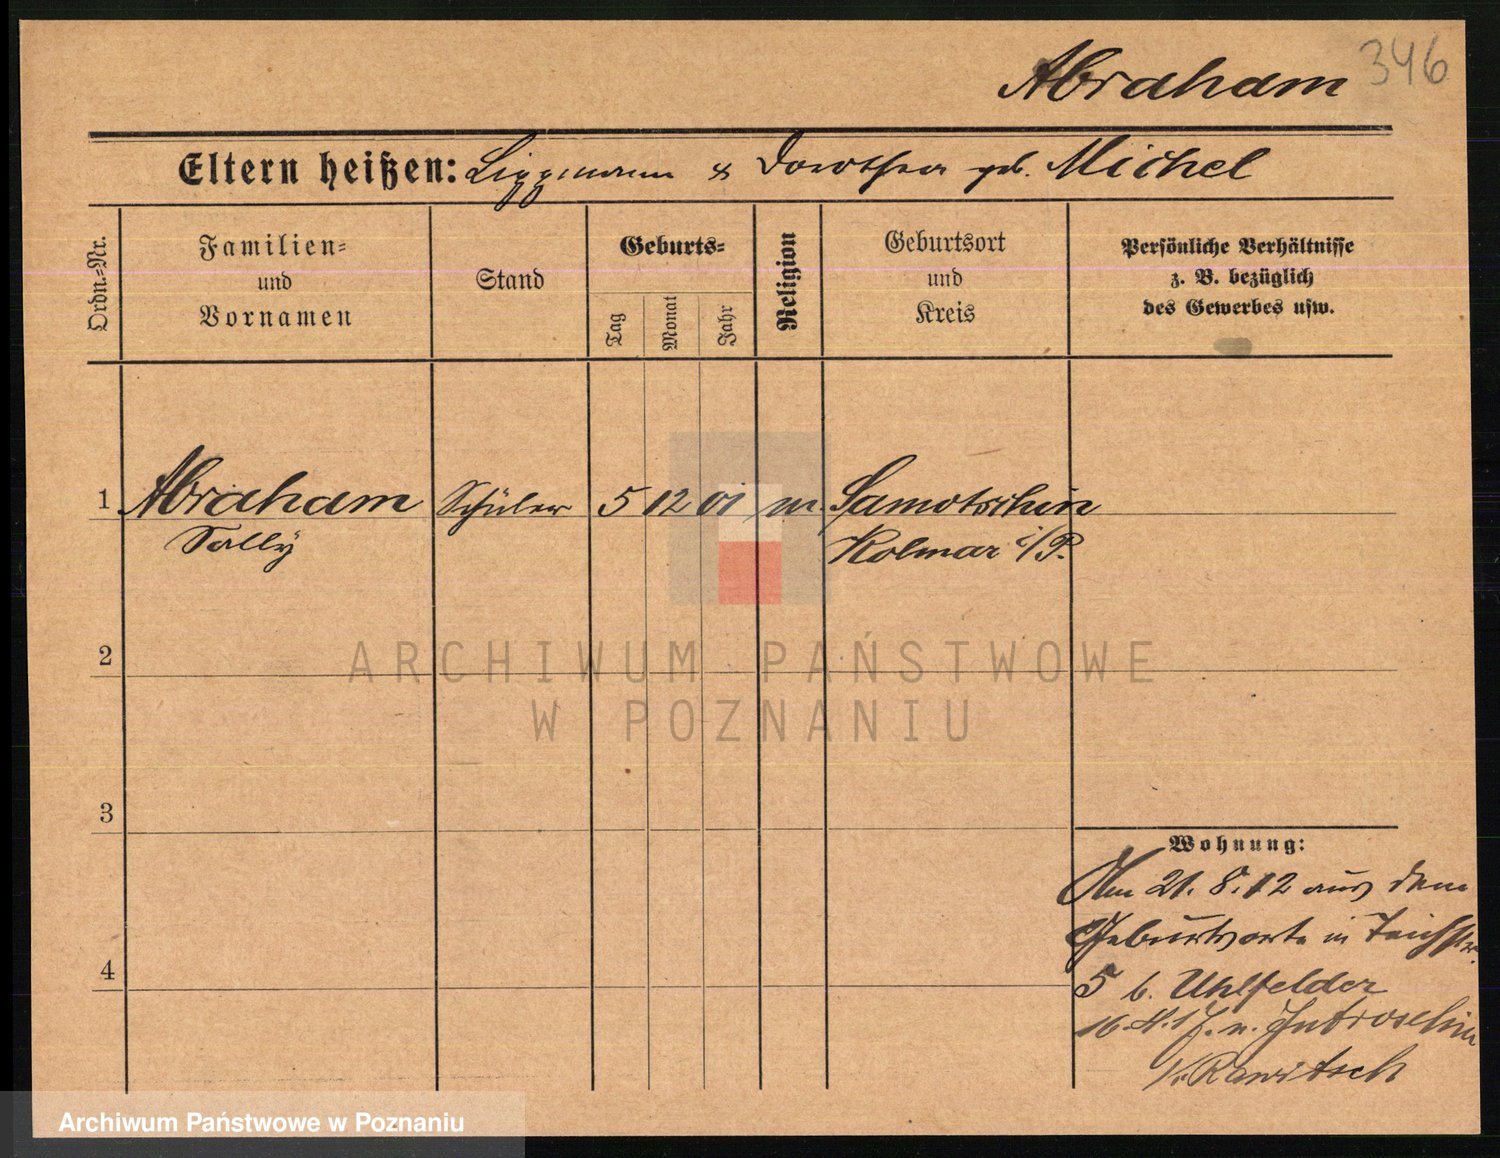 Abraham 346
Eltern heißen: Lippmann & Dorothea geb. Michel
Ordn.-Nr.
Familien-
und
Vornamen
Stand
Geburts-
Tag
Monat
Jahr
Religion
Geburtsort
und
Kreis
Persönliche Verhältnisse
z. B. bezüglich
des Gewerbes usw.
1 Abraham Schüler 5 12 01 m. Samotschin
Sally Kolmar i/P.
2
3
4
Wohnung:
Am 21. 8. 12 aus dem
Geburtsorte in Teichstr.
5 b. Uhlfelder
16. 4. 17. n. Jutroschin
Kr. Rawitsch
ARCHIWUM PAŃSTWOWE
W POZNANIU
Archiwum Państwowe w Poznaniu